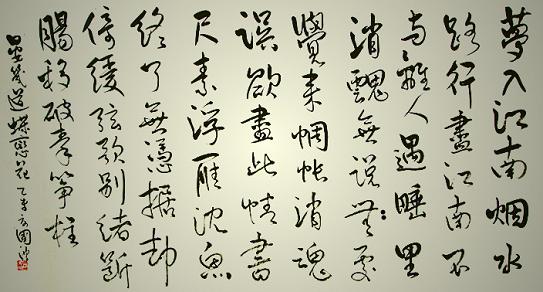 夢入江南烟水
路行盡江南不
与離人遇睡里
消魂無説處
覺来惆悵消魂
誤欲盡此情書
尺素浮雁沈魚
終了無憑據却
倚緩弦歌别緒斷
腸移破秦筝柱
晏幾道蝶戀花